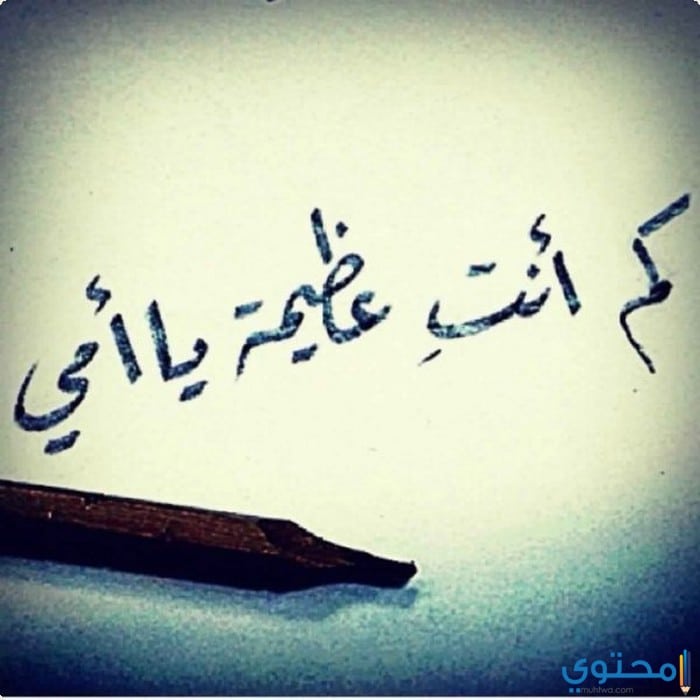 كم أنتِ عظيمة يا أمي
محتوي
muhtwa.com